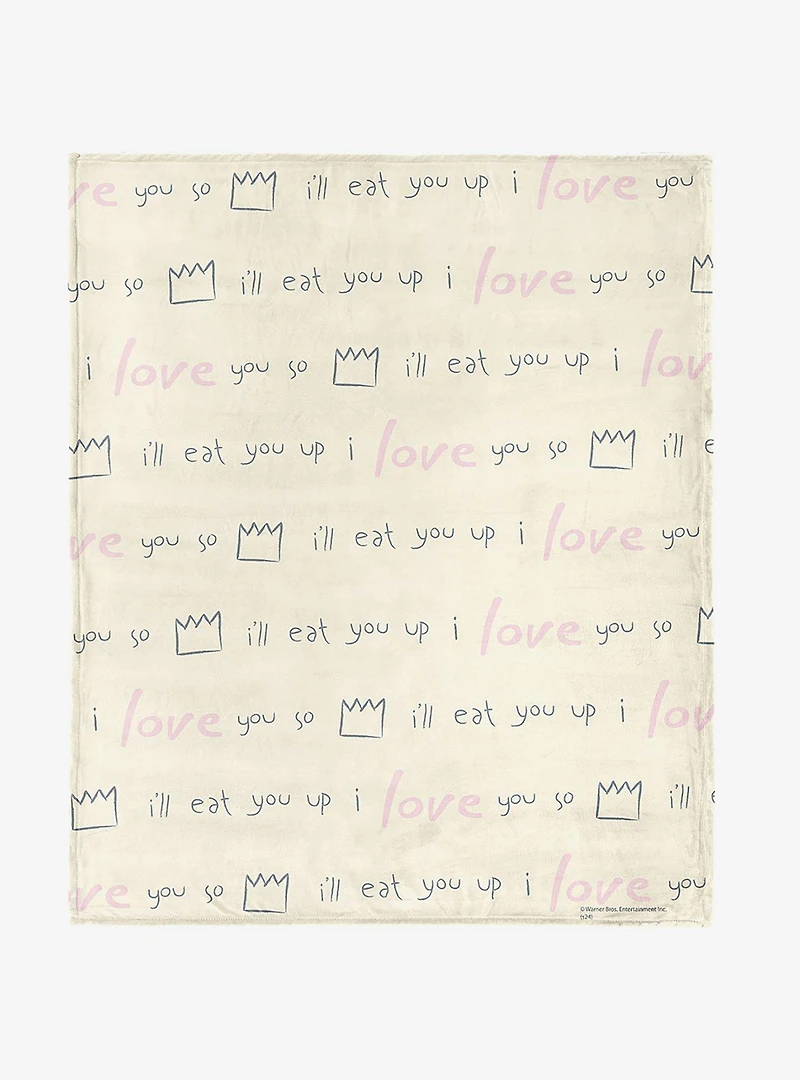 ve you so i'll eat you up i love you
you so i'll eat you up i love you so
i love you so i'll eat you up i lov
i'll eat you up i love you so i'll e
ve you so i'll eat you up i love you
you so i'll eat you up i love you so
i love you so i'll eat you up i lov
i'll eat you up i love you so i'll e
ve you so i'll eat you up i love you
© Warner Bros. Entertainment Inc.
(s24)